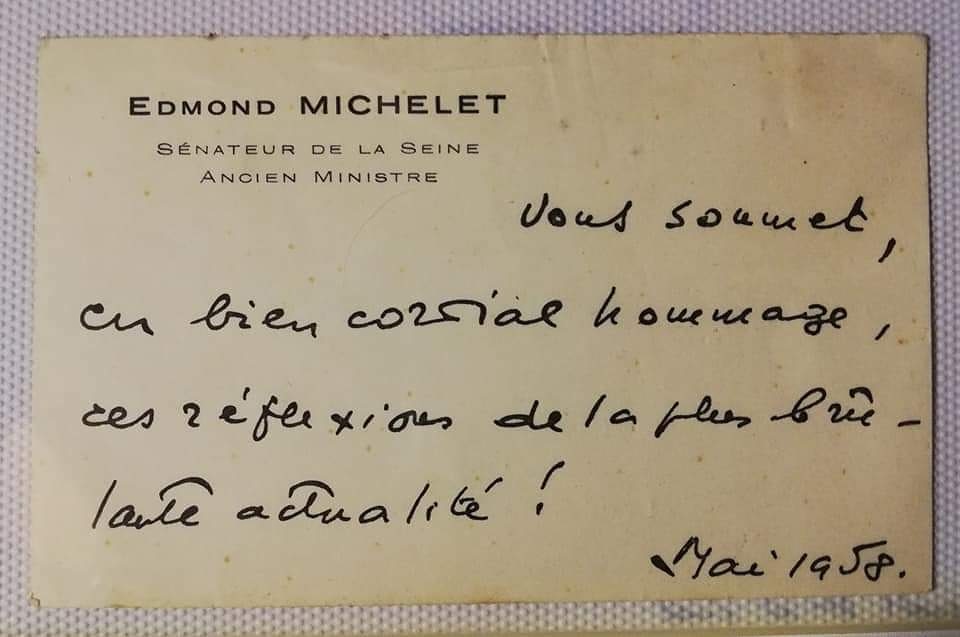 EDMOND MICHELET
SÉNATEUR DE LA SEINE
ANCIEN MINISTRE
Vous soumet,
en bien cordial hommage,
ces réflexions de la plus brû-
lante actualité !
Mai 1958.